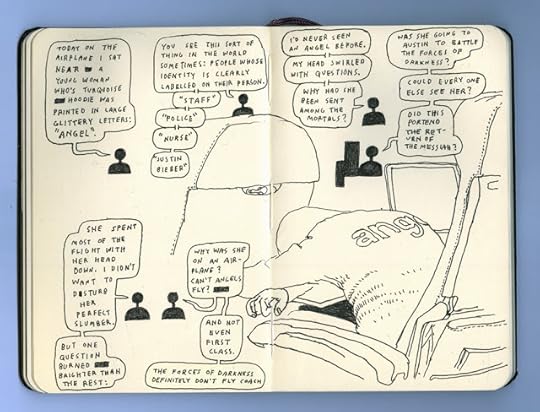 TODAY ON THE
AIRPLANE I SAT
NEAR A
YOUNG WOMAN
WHO'S TURQUOISE
HOODIE WAS
PAINTED IN LARGE
GLITTERY LETTERS:
"ANGEL".
YOU SEE THIS SORT OF
THING IN THE WORLD
SOMETIMES: PEOPLE WHOSE
IDENTITY IS CLEARLY
LABELLED ON THEIR PERSON.
"STAFF"
"POLICE"
"NURSE"
"JUSTIN
BIEBER"
I'D NEVER SEEN
AN ANGEL BEFORE.
MY HEAD SWIRLED
WITH QUESTIONS.
WHY HAD SHE
BEEN SENT
AMONG THE
MORTALS?
WAS SHE GOING TO
AUSTIN TO BATTLE
THE FORCES OF
DARKNESS?
COULD EVERY ONE
ELSE SEE HER?
DID THIS
PORTEND
THE RET-
URN OF
THE MESSIAH?
ang
SHE SPENT
MOST OF THE
FLIGHT WITH
HER HEAD
DOWN. I DIDN'T
WANT TO
DISTURB
HER
PERFECT
SLUMBER.
BUT ONE
QUESTION
BURNED
BRIGHTER THAN
THE REST:
WHY WAS SHE
ON AN AIR-
PLANE?
CAN'T ANGELS
FLY?
AND NOT
EVEN
FIRST
CLASS.
THE FORCES OF DARKNESS
DEFINITELY DON'T FLY COACH